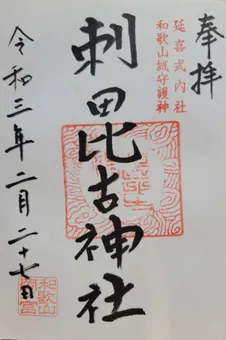 奉拝
延喜式内社
和歌山城守護神
刺田比古神社
令和三年二月二十七日